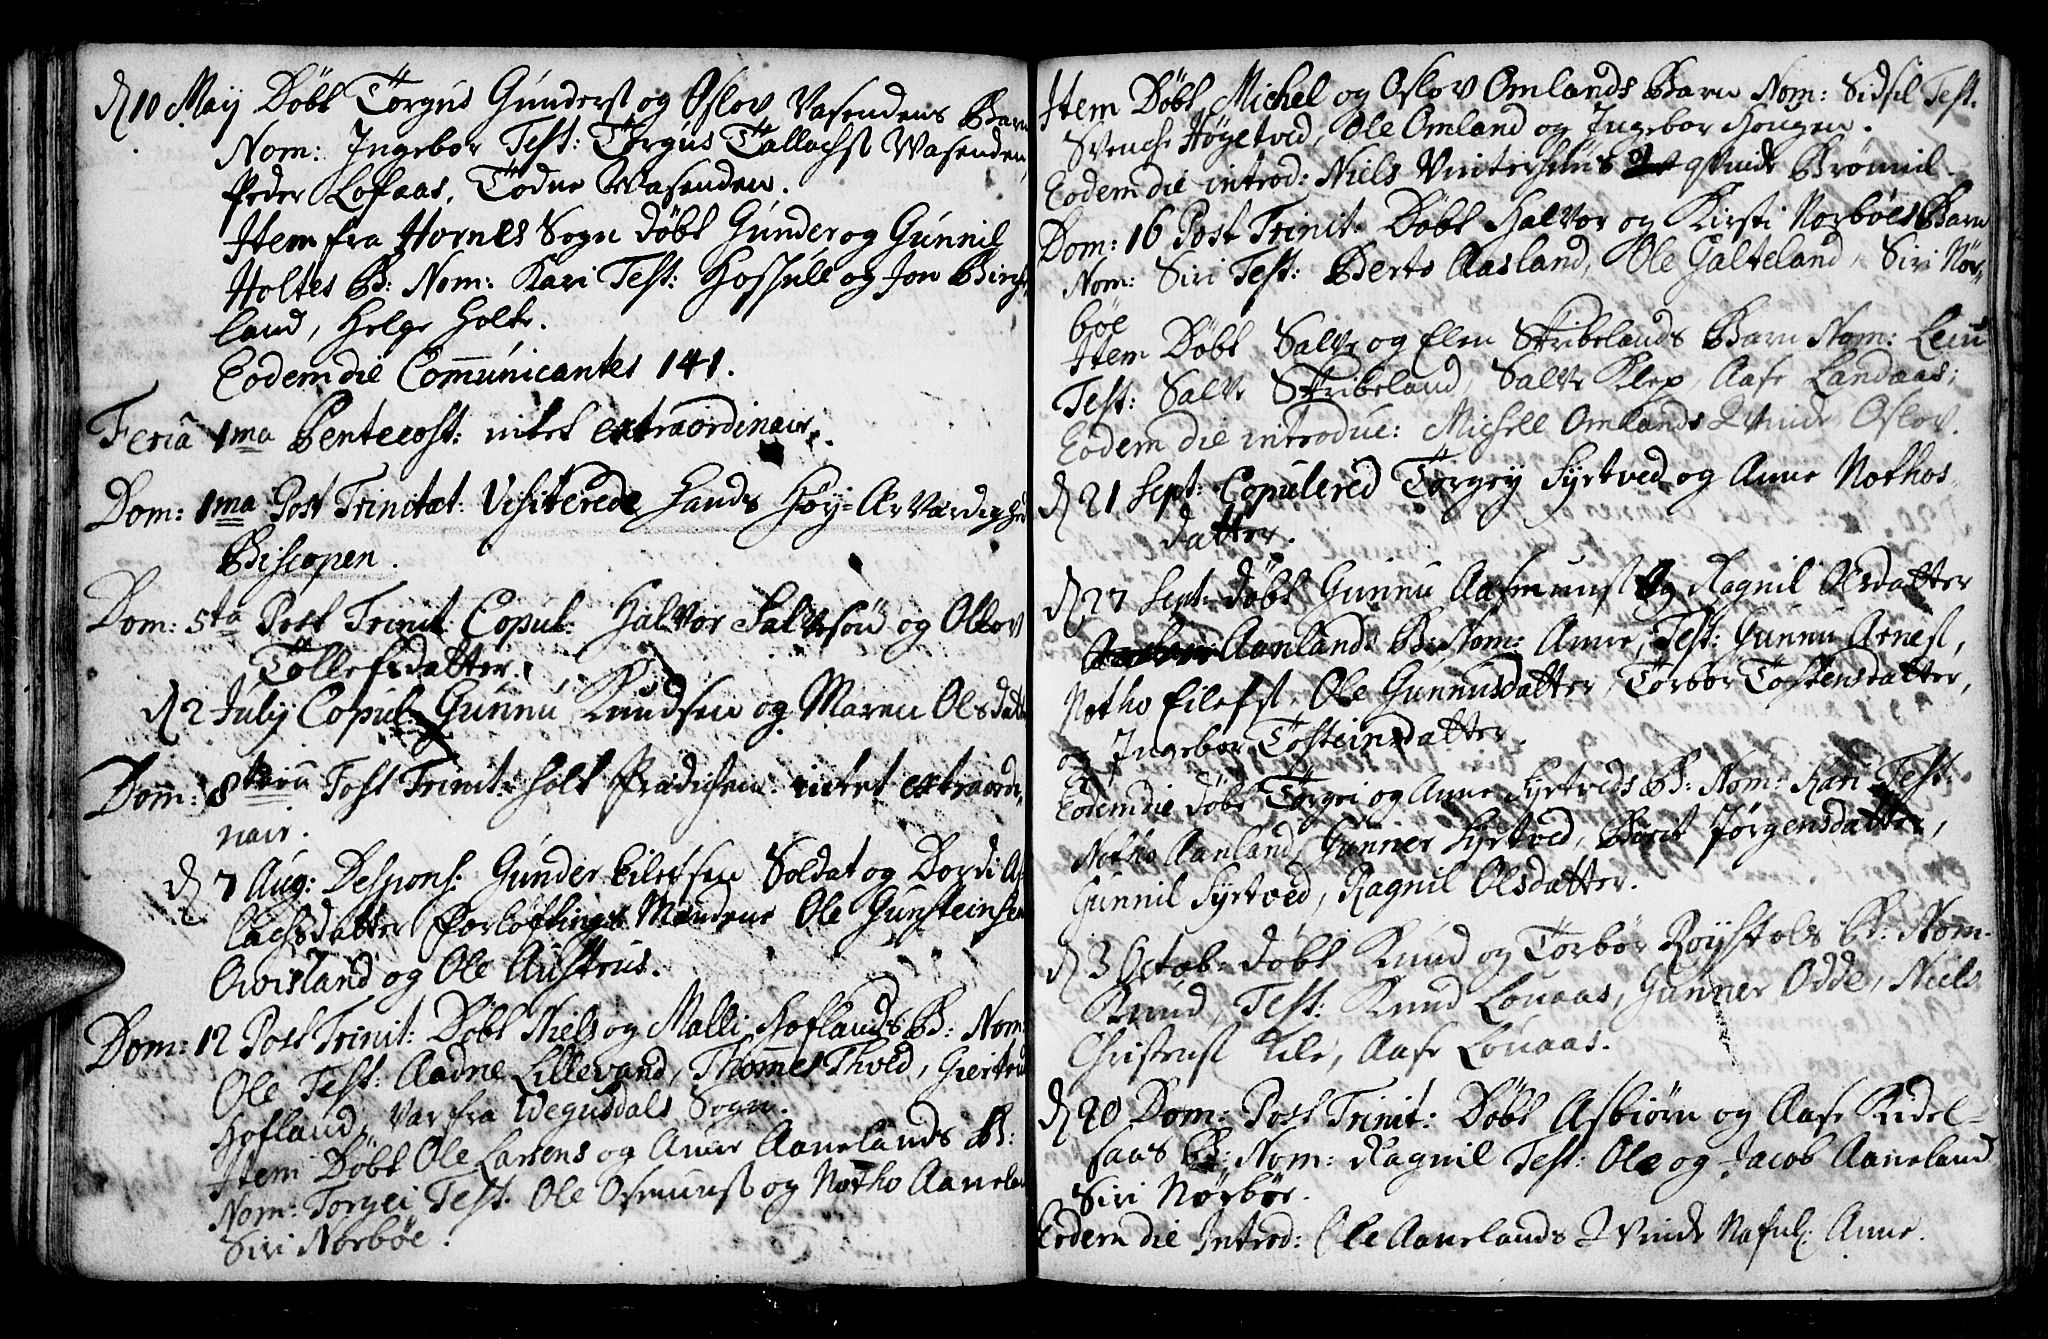 D 10 Maij Döbt Törgus Gunders: og Oslov Vasendens Barn
Nom: Ingebor Test: Törgus Tallachs: Wasenden,
Peder Lofaas, Todne Wasenden.
Item fra Hornes Sogn döbt Gunder og Gunnil
Holtes B: Nom: Kari Test: Hoskull og Jon Birche-
land, Helge Holte.
Eodem die Com̄unicantes 141.
Feriâ 1ma Pentecost: intet extraordinair.
Dom: 1ma Post Trinitat: Visiterede Hands Höy-Ærværdighed
Biscopen.
Dom: 5ta Post Trinit: Copul: Halvor Salvesön og Oslov
Tollefsdatter.
D 2 July Copul: Gunnu Knudsen og Maren Olsdatter
Dom: 8 Post Trinit: holt Prædichen: intet extraordi-
nair.
D 7 Aug: Despons: Gunder Eilefsen Soldat og Dordi As-
lachsdatter Forlöftnings Mændene Ole Gunsteinsen
Ovisland og Ole Austrus.
Dom: 12 Post Trinit: Döbt Niels og Malli Hoflands B: Nom:
Ole Test: Aadne Lillevand, Thomes Thved, Giertrud
Hofland, var fra Wegusdals Sogn.
Item Döbt Ole Larsens og Anne Aanelands B:
Nom: Torgei Test: Ole Osmuns: og Notho Aaneland
Siri Norböe.
Item Döbt Michel og Oslov Omlands Barn Nom: Sidsil Test.
Svenche Högetved, Ole Omland og Ingebor Hougen.
Eodem die introd: Niels Vintershuus qvinde Brönnil
Dom: 16 Post Trinit: Döbt Halvor og Kirsti Norböes Barn
Nom: Siri Test: Berte Aasland, Ole Galteland, Siri Nör-
böe
Item Döbt Salve og Elen Skribelands Barn Nom:
Test: Salve Skribeland, Salve Klep, Aase Landaas;
Eodem die introduc: Michell Omlands Qvinde Oslov.
D 21 Sept: Copulered Törgey Syrtved og Anne Nothos
datter.
D 27 Sept: döbt Gunnu Aasmuns: Og Ragnil Olsdatter
Aanlands B: Nom: Anne, Test: Gunnu Arnes:,
Notho Eilefs:, Ole Gunnusdatter, Torbor Tostensdatter,
og Ingebor Tosteinsdatter.
Eodem die döbt Törgei og Anne Syrtveds B: Nom: Kari Test:
Notho Aanland, Gunner Syrtved, Berit Jörgensdatter,
Gunnil Syrtved, Ragnil Olsdatter.
D 3 Octob: döbt Knud og Torbör Röystols B: Nom.
Knud, Test: Knud Louaas, Gunner Odde, Niels
Christens: Kile, Aase Louaas.
D 20 Dom: Post Trinit: Döbt Asbiörn og Aase Kidel-
saas B: Nom: Ragnil Test: Ole og Jacob Aaneland
Siri Nörbör.
Eodem die Introd: Ole Aanelands Qvinde Nafnl: Anne.